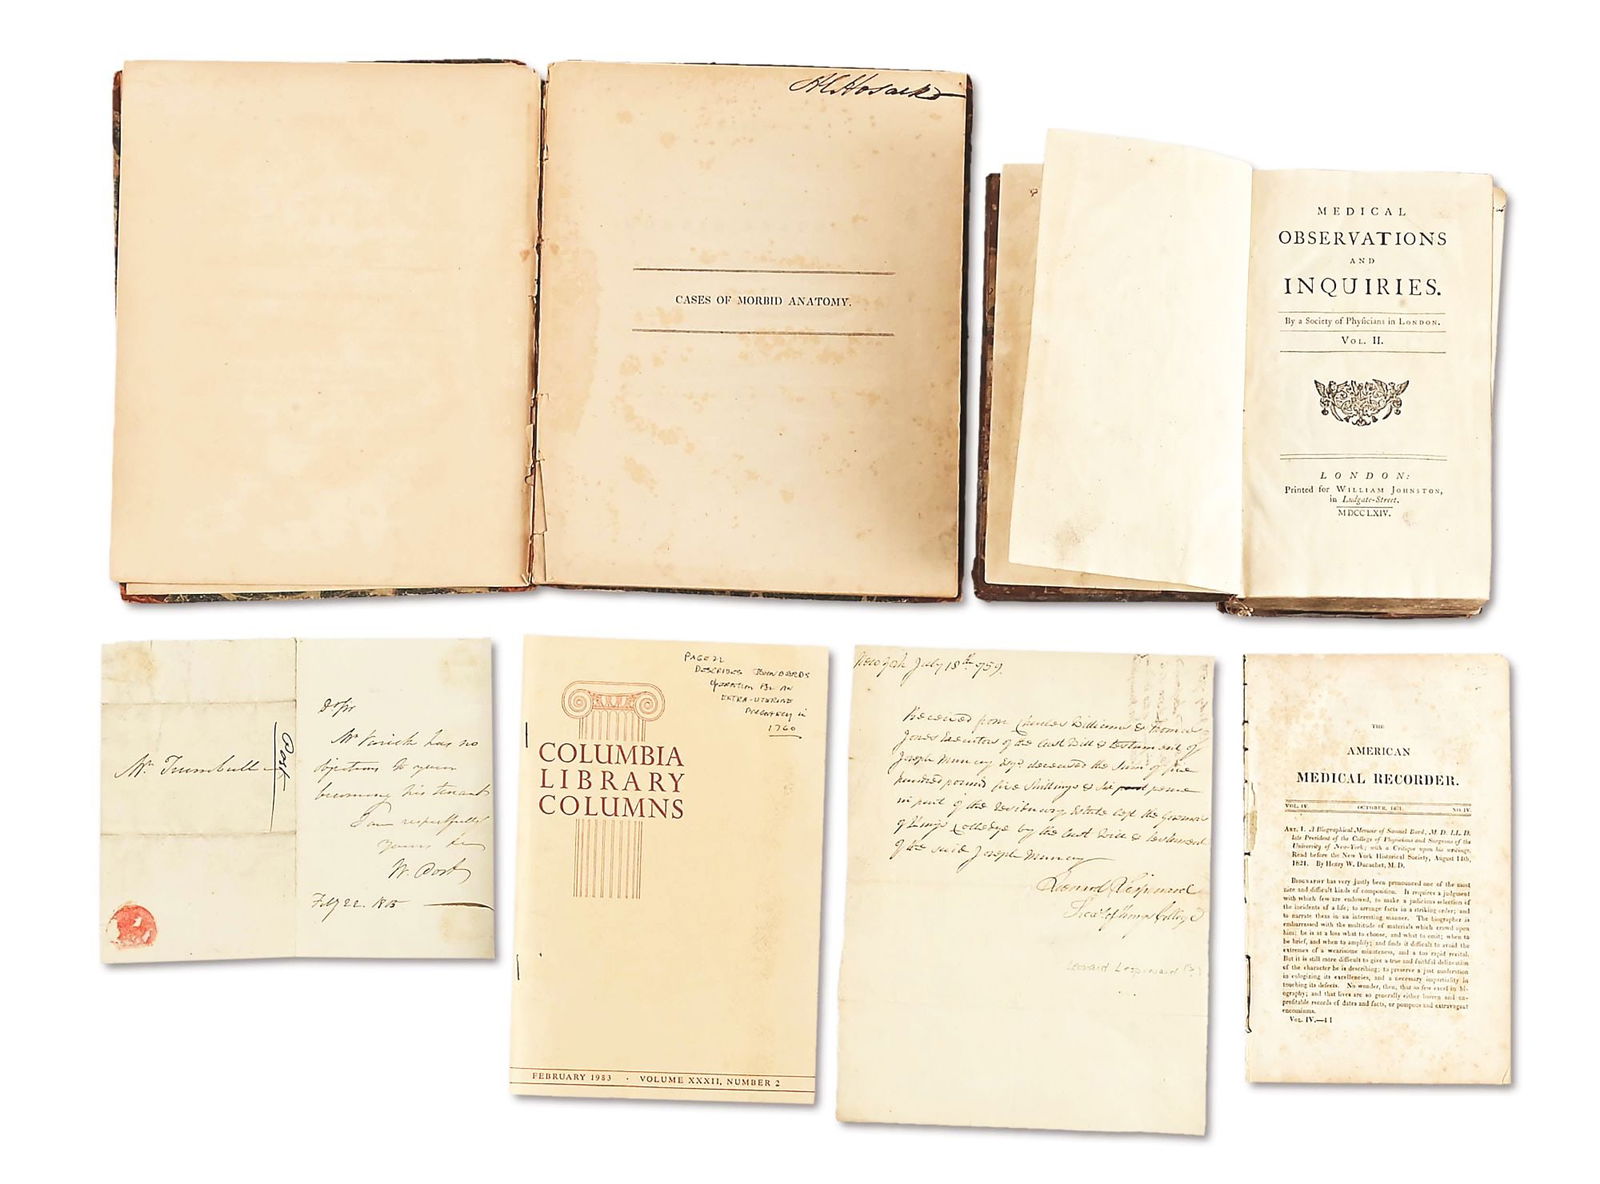 Hosack
CASES OF MORBID ANATOMY.
MEDICAL
OBSERVATIONS
AND
INQUIRIES.
By a Society of Phyſicians in LONDON.
VOL. II.
LONDON:
Printed for WILLIAM JOHNSTON,
in Ludgate-Street.
MDCCLXIV.
Mr. Trumbull
Post
D Sir
Mr Varick has no
objections to your
becoming his tenant
I am respectfully
yours &c
W. Post
Feby 22. 1815
PAGE 22
DESCRIBES JOHN BARDS
OPERATION FOR AN
EXTRA-UTERINE
PREGNANCY in
1760
COLUMBIA
LIBRARY
COLUMNS
FEBRUARY 1983 · VOLUME XXXII, NUMBER 2
New York July 18th 1759.
Received from Charles Williams & Thomas
Jones Executors of the Last Will & Testament of
Joseph Murray Esqr deceased the Sum of five
hundred pounds five Shillings & Six pence
in part of the Residuary Estate left the Governors
of Kings Colledge by the Last Will & Testament
of the said Joseph Murray
Leonard Lispenard
Treasr of Kings College
Leonard Lispenard
THE
AMERICAN
MEDICAL RECORDER.
VOL. IV. OCTOBER, 1821. NO. IV.
ART. I. A Biographical Memoir of Samuel Bard, M. D. LL. D.
late President of the College of Physicians and Surgeons of the
University of New-York; with a Critique upon his writings.
Read before the New York Historical Society, August 14th,
1821. By Henry W. Ducachet, M. D.
BIOGRAPHY has very justly been pronounced one of the most
nice and difficult kinds of composition. It requires a judgment
with which few are endowed, to make a judicious selection of
the incidents of a life; to arrange facts in a striking order; and
to narrate them in an interesting manner. The biographer is
embarrassed with the multitude of materials which crowd upon
him; he is at a loss what to choose, and what to omit; when to
be brief, and when to amplify; and finds it difficult to avoid the
extremes of a wearisome minuteness, and a too rapid recital.
But it is still more difficult to give a true and faithful delineation
of the character he is describing; to preserve a just moderation
in eulogizing its excellencies, and a necessary impartiality in
touching its defects. No wonder, then, that so few excel in bi-
ography; and that lives are so generally either barren and un-
profitable records of dates and facts, or pompous and extravagant
encomiums.
VOL. IV.—4 I